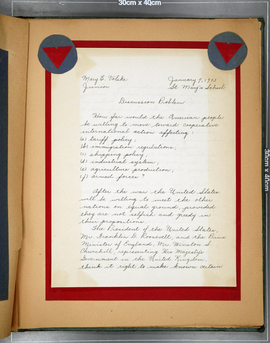 30cm x 40cm
January 9, 19
Junior St. Mary's School
Discussion Problem
How far would the American people
be willing to move toward cooperative
international action affecting:
(a) tariff policy;
(b) immigration regulations;
(c) shipping policy;
(d) industrial system;
(e) agriculture production;
(f) armed force?
After the war the United States
will be willing to meet the other
nations on equal ground, provided
they are not selfish and greedy in
their propositions.
The President of the United States,
Mr. Franklin D. Roosevelt, and the Prime
Minister of England, Mr. Winston S.
Churchill, representing His Majesty's
Government in the United Kingdom
think it right to make known certain
30cm x 40cm